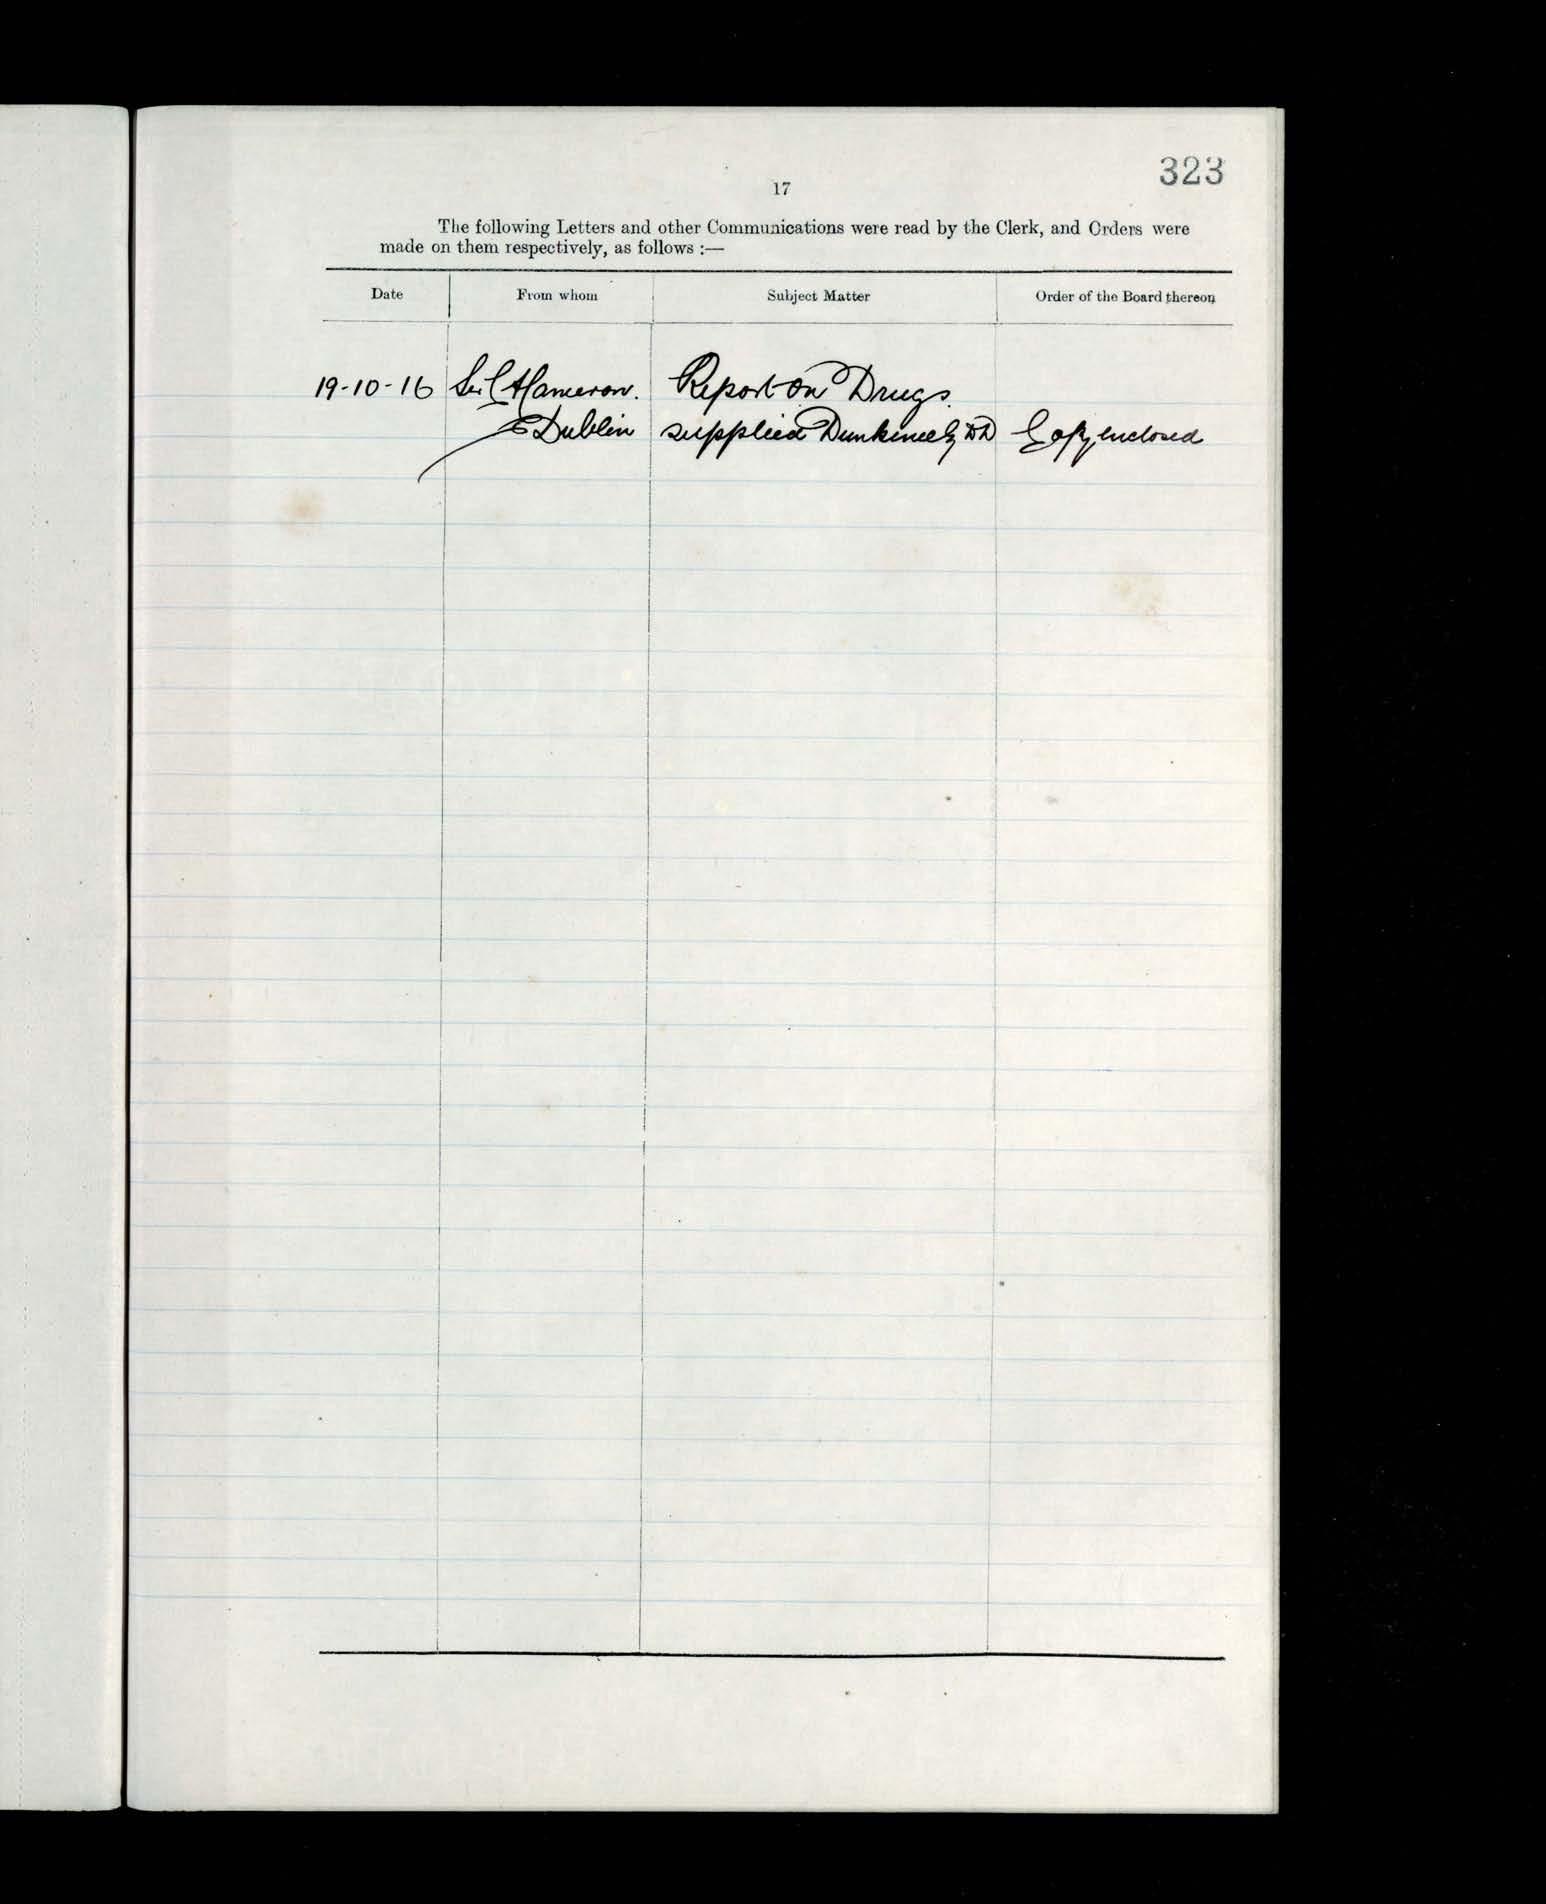 323
17
The following Letters and other Communications were read by the Clerk, and Orders were
made on them respectively, as follows :—
Date From whom Subject Matter Order of the Board thereon
19-10-16 Sir C A Cameron. Report on Drugs.
Dublin supplied Dunkineely DD Copy enclosed